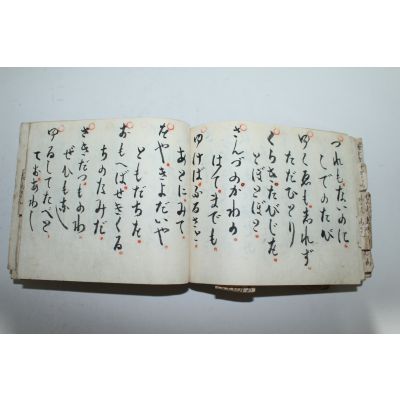 つれもないのに
しでのたび
ゆくゑもしれず
ただひとり
くらきたびじを
とぼとぼと
さんづのかわの
はてまでも
ゆけばふるさと
あとにみて
をやきよだいや
ともだちを
おもへばせきくる
ちのなみだ
さきだつものわ
ぜひもなし
ゆるしてたべと
てをあわし